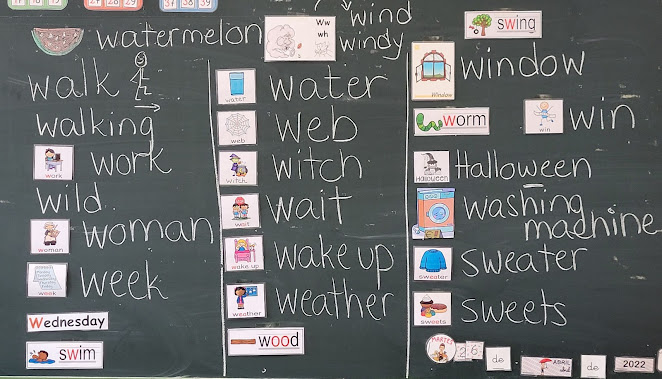 27 28 29
37 38 39
watermelon
Ww
wh
wind
windy
swing
walk
walking
work
work
wild
woman
woman
week
week
Wednesday
swim
water
water
web
web
witch
witch
wait
wait
wake up
wake up
weather
weather
wood
Window
window
worm
win
win
Halloween
Halloween
washing
machine
sweater
sweater
sweets
sweets
MARTES
26 de ABRIL de 2022